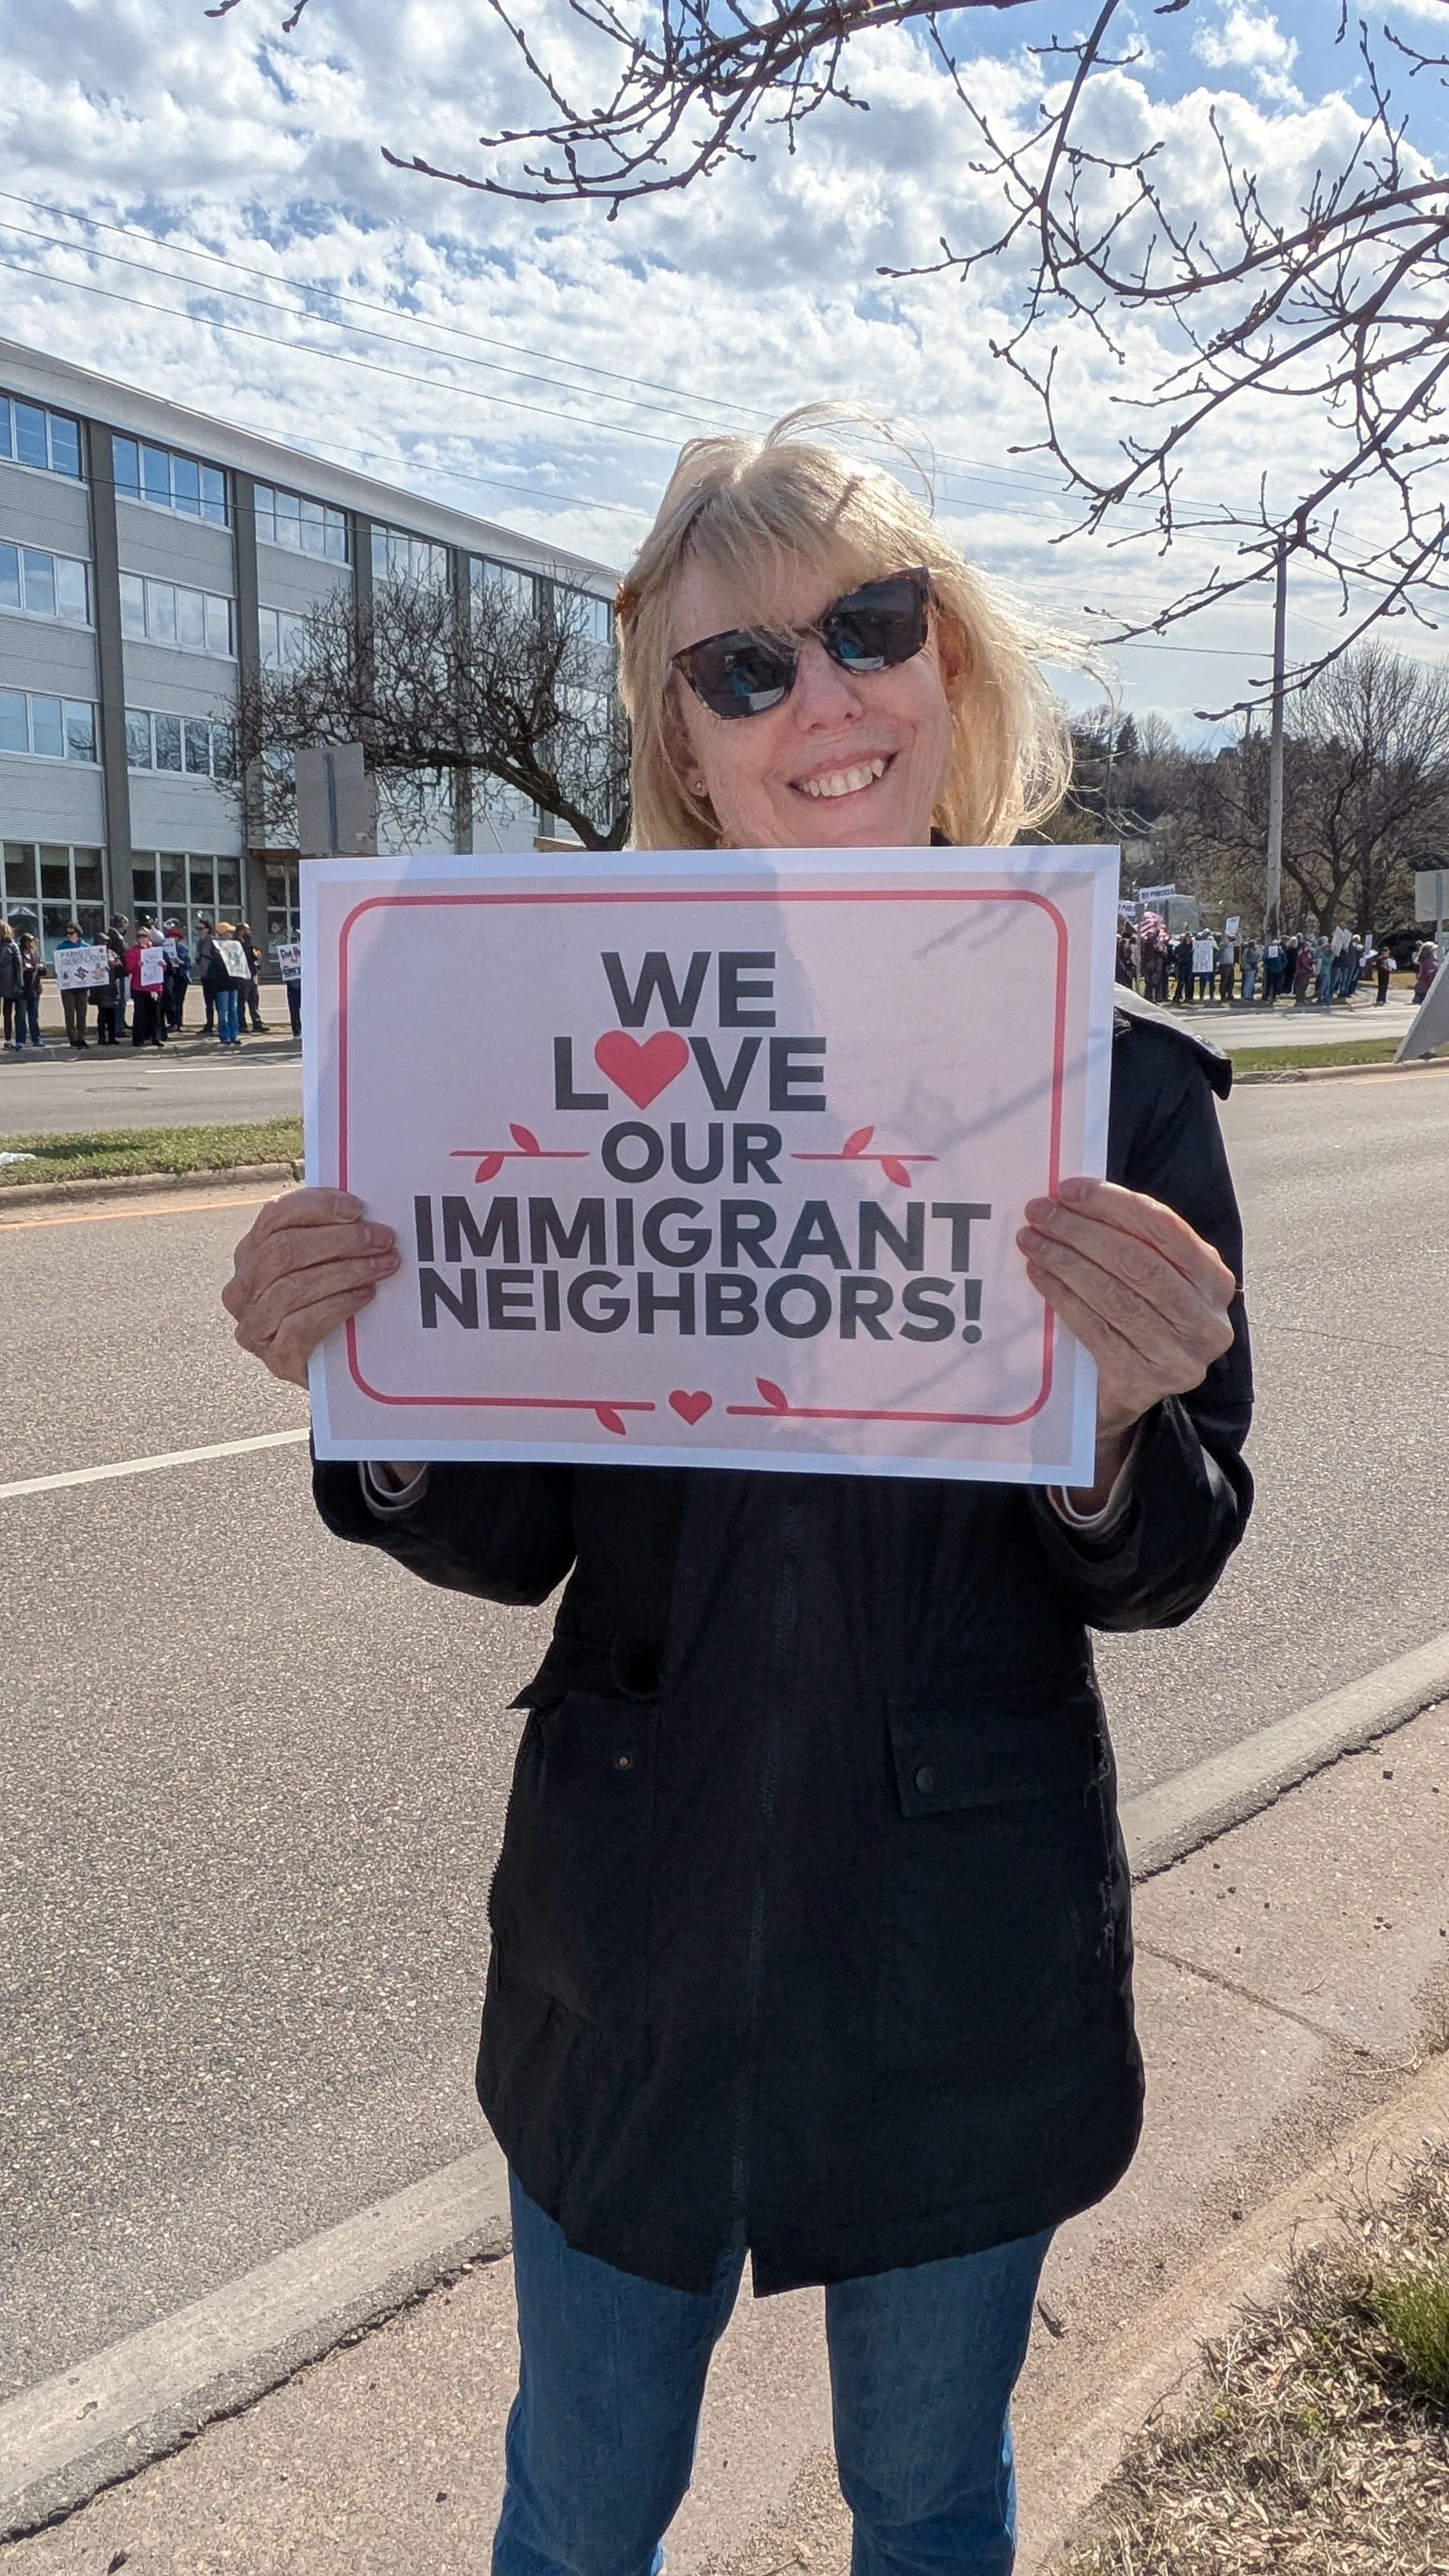 WE
L❤VE
OUR
IMMIGRANT
NEIGHBORS!